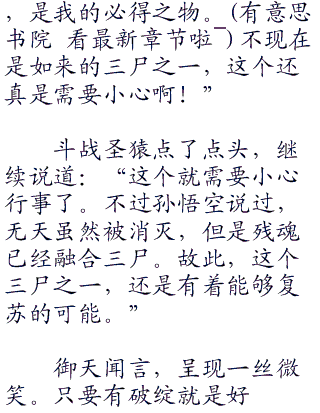 ，是我的必得之物。（有意思
书院 看最新章节啦¯）不现在
是如来的三尸之一，这个还
真是需要小心啊！”
斗战圣猿点了点头，继
续说道：“这个就需要小心
行事了。不过孙悟空说过，
无天虽然被消灭，但是残魂
已经融合三尸。故此，这个
三尸之一，还是有着能够复
苏的可能。”
御天闻言，呈现一丝微
笑。只要有破绽就是好